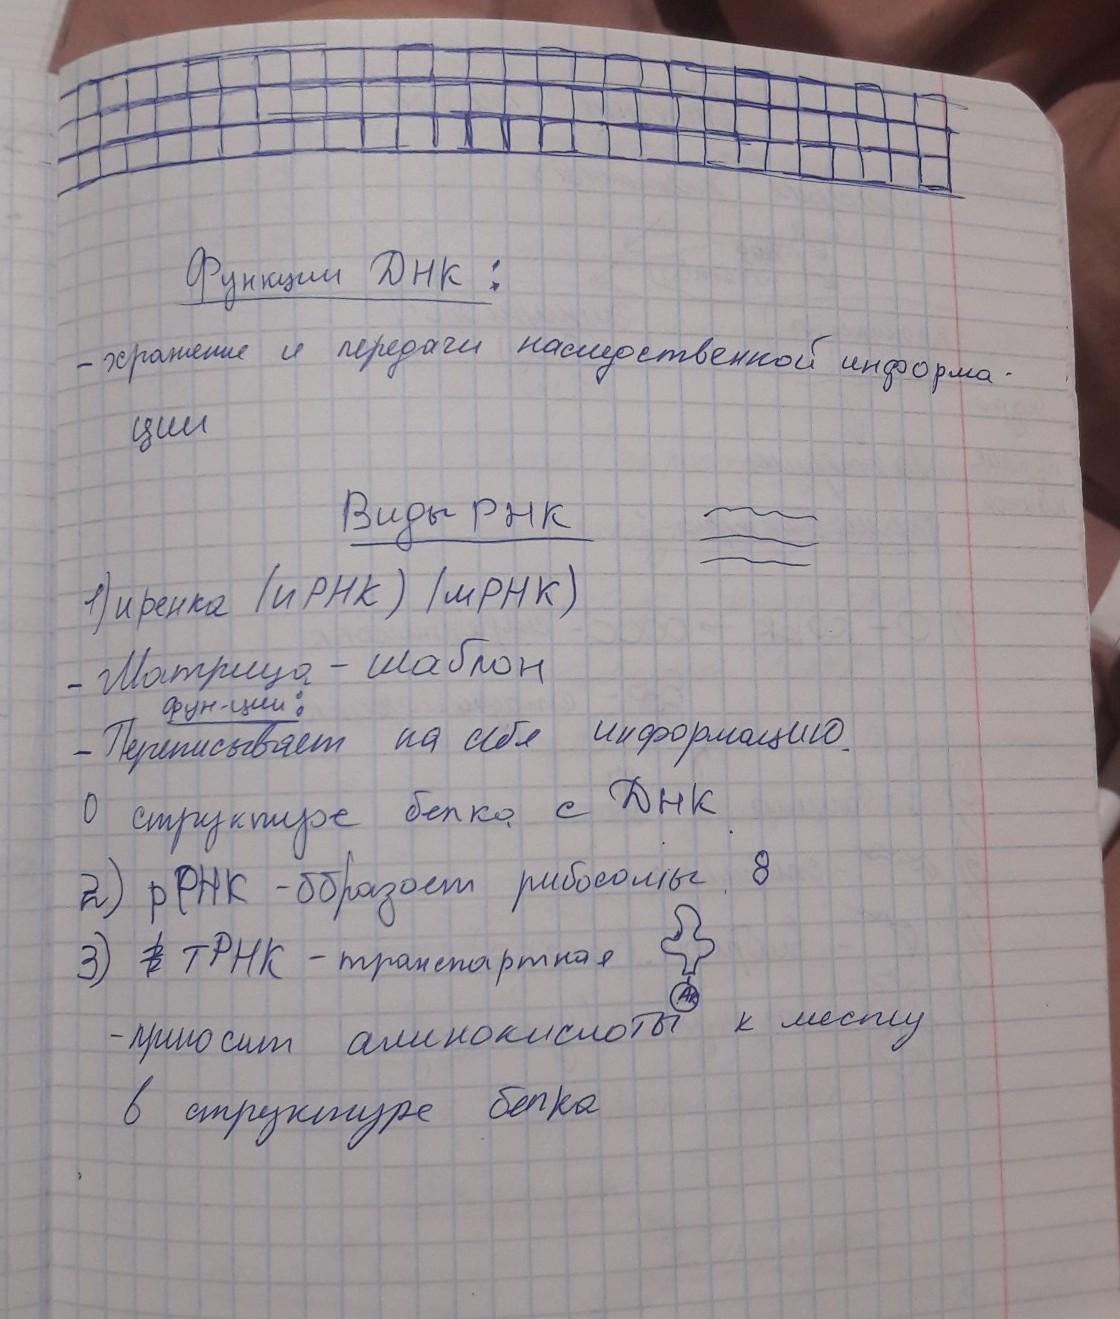 Функции ДНК:
- хранение и передачи наследственной информа-
ции
Виды РНК
1) иренка (иРНК) (мРНК)
- Матрица - шаблон
фун-ции:
- Переписывает на себя информацию.
О структуре белка с ДНК.
2) рРНК - образает рибосомы. 8
3) тРНК - транспортная
Ак
- приносит аминокислоты к месту
в структуре белка